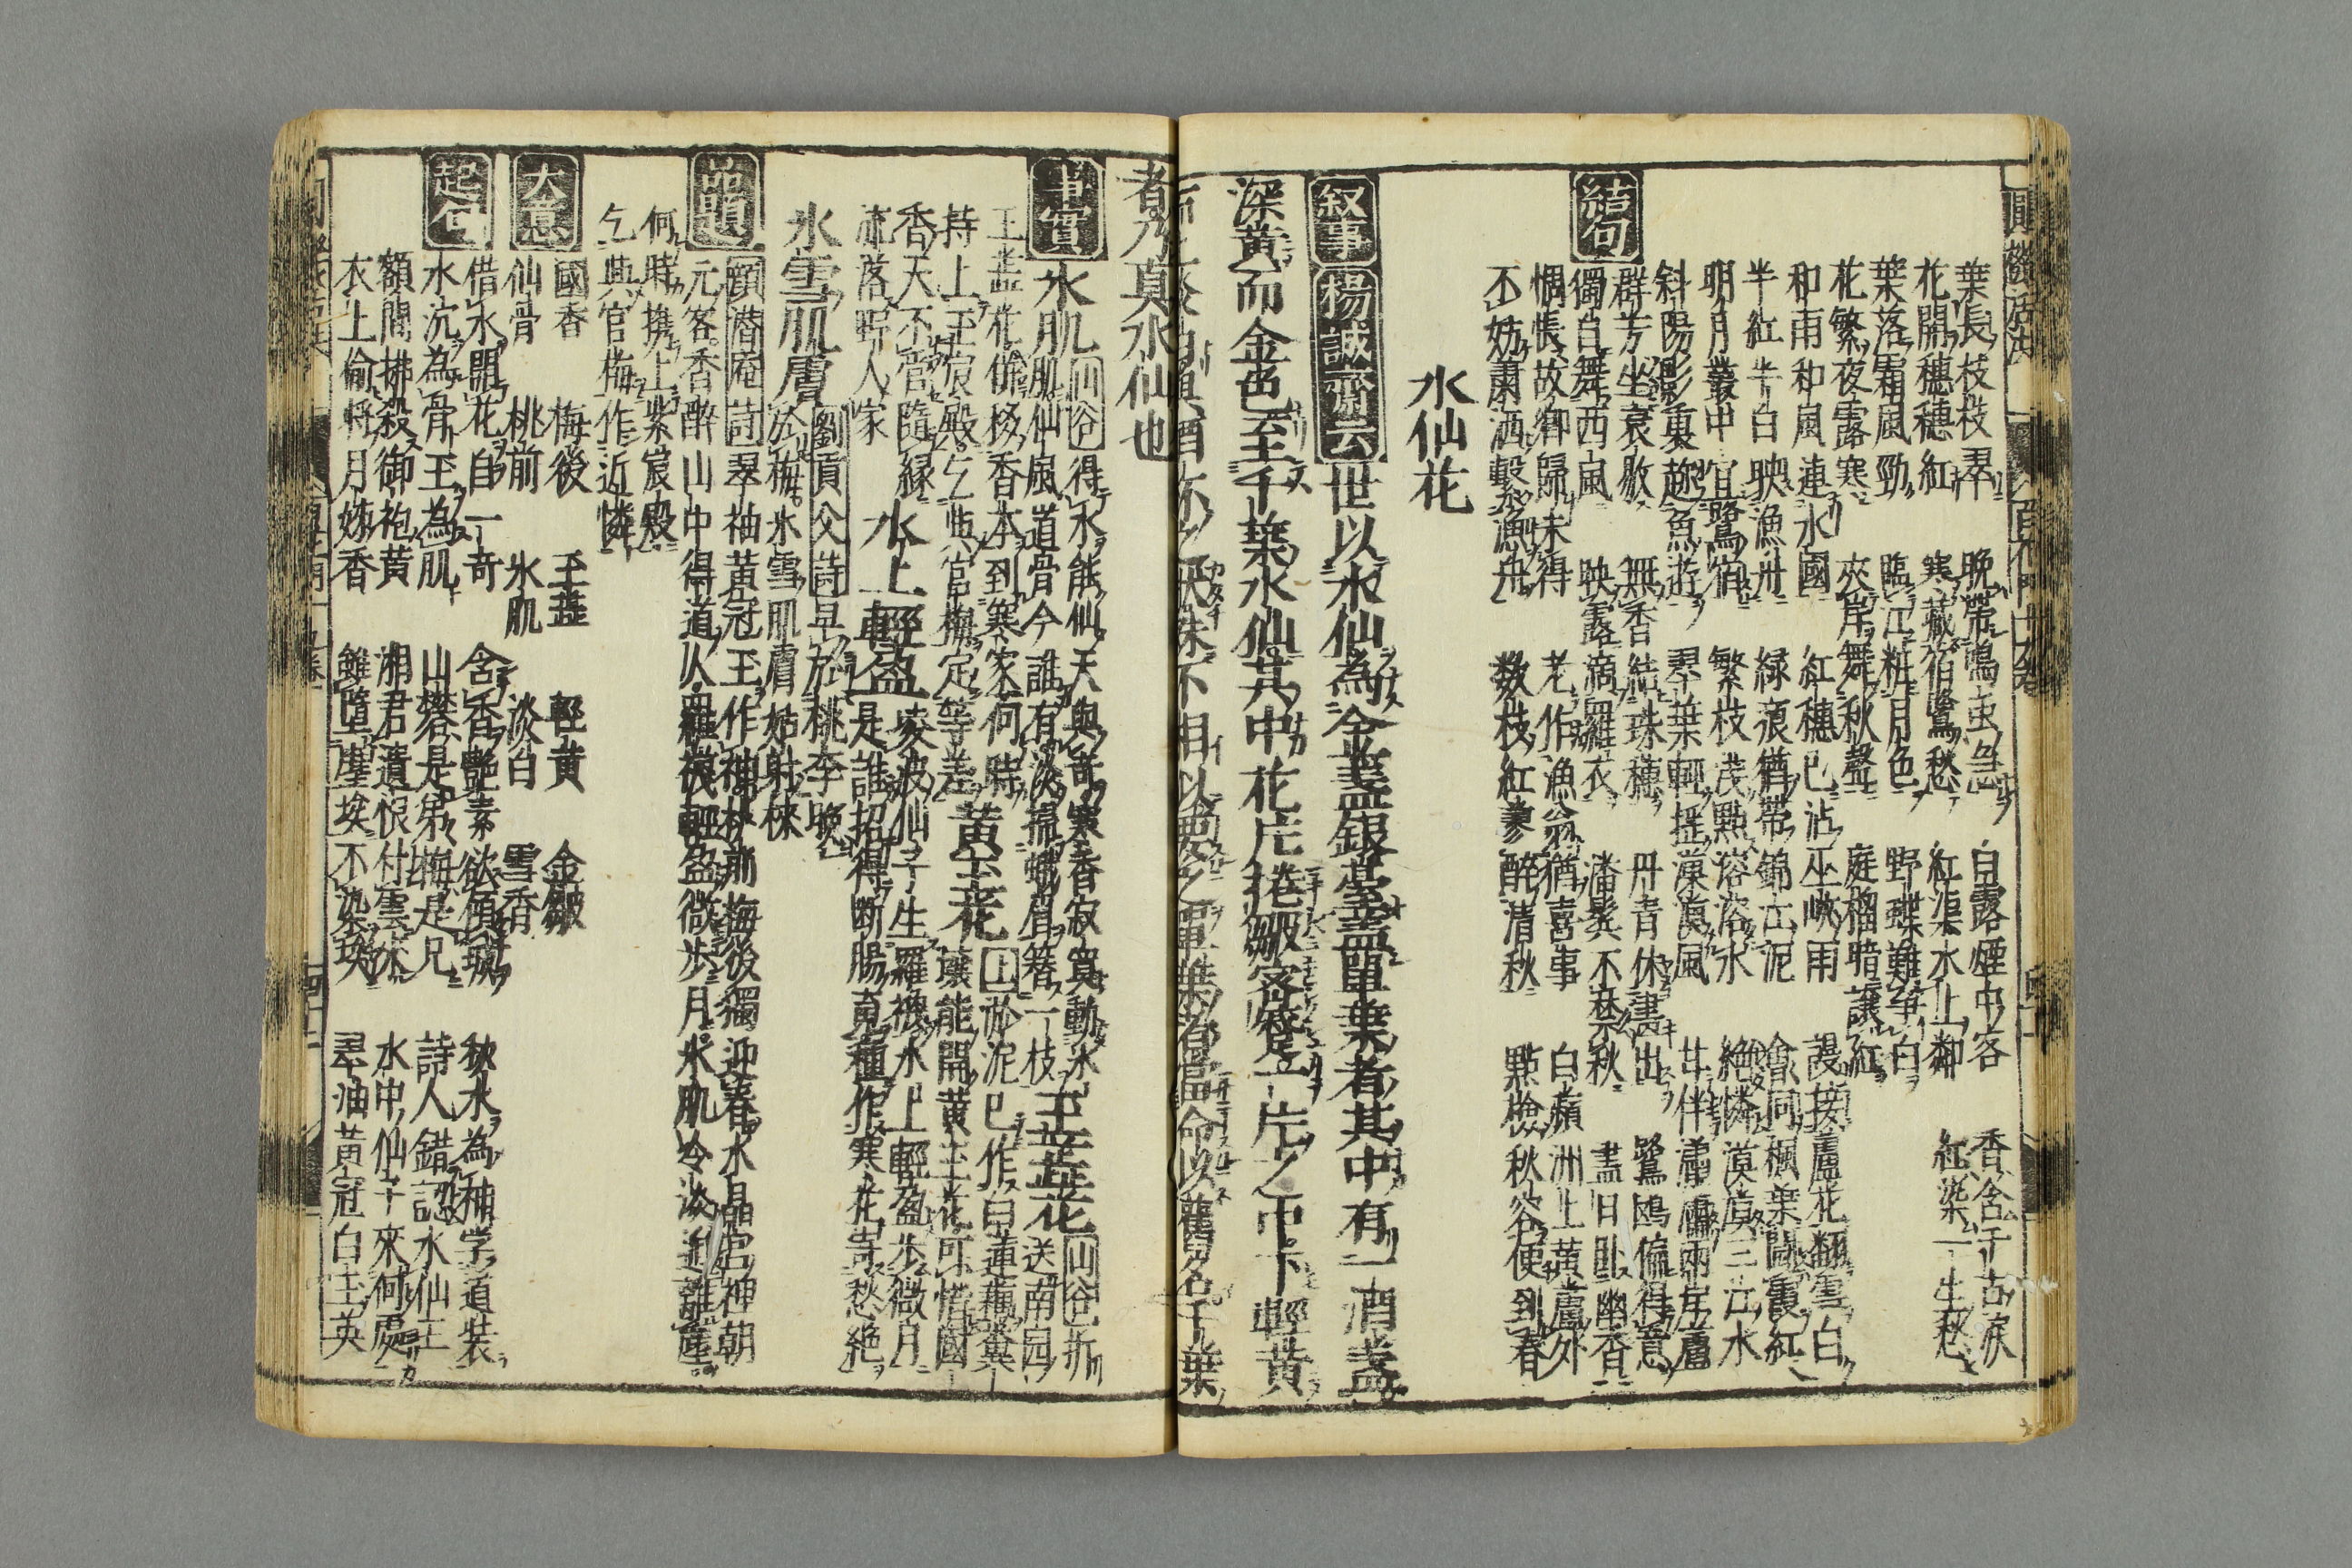 葉長枝枝翠 晩帶鳴虫急 白露煙中客 香含千古淚
花開穗穗紅 寒藏宿鷺愁 紅蕖水上鄰 紅染一生愁
葉落霜風勁 臨江粧月色 野蝶難爭白
花繁夜露寒 夾岸舞秋聲 庭榴暗讓紅
和雨和風連水國 紅穗已沾巫峽雨 謾按蘆花翻雪白
半紅半白映漁舟 綠痕猶帶錦江泥 會同楓葉鬪霞紅
明月叢中宜鷺宿 繁枝茂點溶溶水 絕憐漠漠三江水
斜陽影裏趂魚遊 翠葉輕搖漠漠風 甘伴瀟瀟兩岸蘆
群芳坐衰歇 無香結珠穗 丹青休畫出 鷺鷗偏得意
結句
獨自舞西風 映露滴羅衣 潘鬂不禁秋 盡日臥幽香
惆悵故御歸未得 老作漁翁猶喜事 白蘋洲上黃蘆外
不妨蕭洒繫漁舟 數枝紅蓼醉清秋 點檢秋容便到春
水仙花
叙事 楊誠齋云 世以水仙為金盞銀臺盖單葉者其中有一酒盞
深黃而金色至千葉水仙其中花片捲皺密蹙一片之中下輕黃
者乃真水仙也
事實 水肌 山谷 得水能仙天與奇寒香寂寞動氷
肌仙風道骨今誰有淡掃蛾眉簪一枝 玉蕋花 山谷 折
送南园 上 於泥已作白蓮藕糞
玉盖花催移香本到寒家何時
持上玉宸殿乞與官梅定等差 黃玉花 壤能開黃玉花可惜國
香天不管隨緣
流落野人家 水上輕盈 凌波仙子生羅襪水上輕盈步微月
是誰招得斷腸魂種作寒花寄愁絕
氷雪肌膚 劉貢父詩 早於桃李晚
於梅氷雪肌膚姑射徠
品題 顧潜庵詩 翠袖黃冠玉作神桃前梅後獨迎春水晶宮神朝
元客香醉山中得道人羅襪輕盈微步月氷肌冷淡
何時携上紫宸殿
乞與官梅作近憐
大意 國香 梅後 玉蕋 輕黃 金皺
仙骨 桃前 氷肌 淡白 雪香
起句 借水開花自一奇 含香艷素欲傾城 秋水為神学道裝
水沉為骨玉為肌 山礬是弟梅是兄 詩人錯認水仙王
額間拂殺御袍黃 湘君遺恨付雲 水中仙子來何處
衣上偷將月姊香 雖墮塵埃不染埃 翠油黃冠白玉英